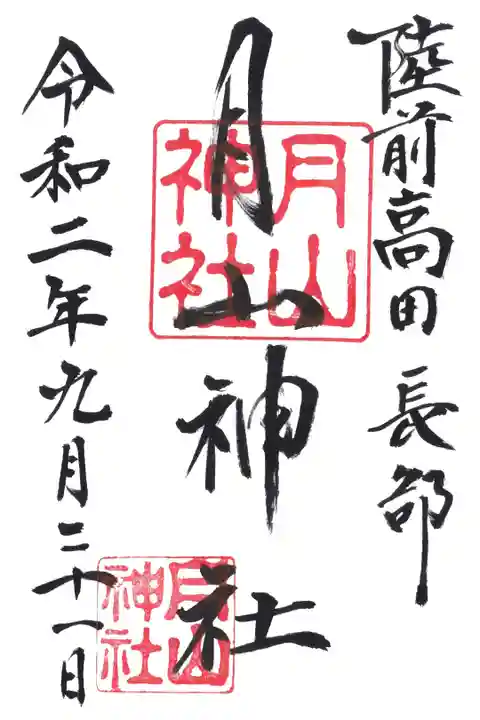 陸前高田 長部
月山神社
月山
神社
令和二年九月二十一日
月山
神社